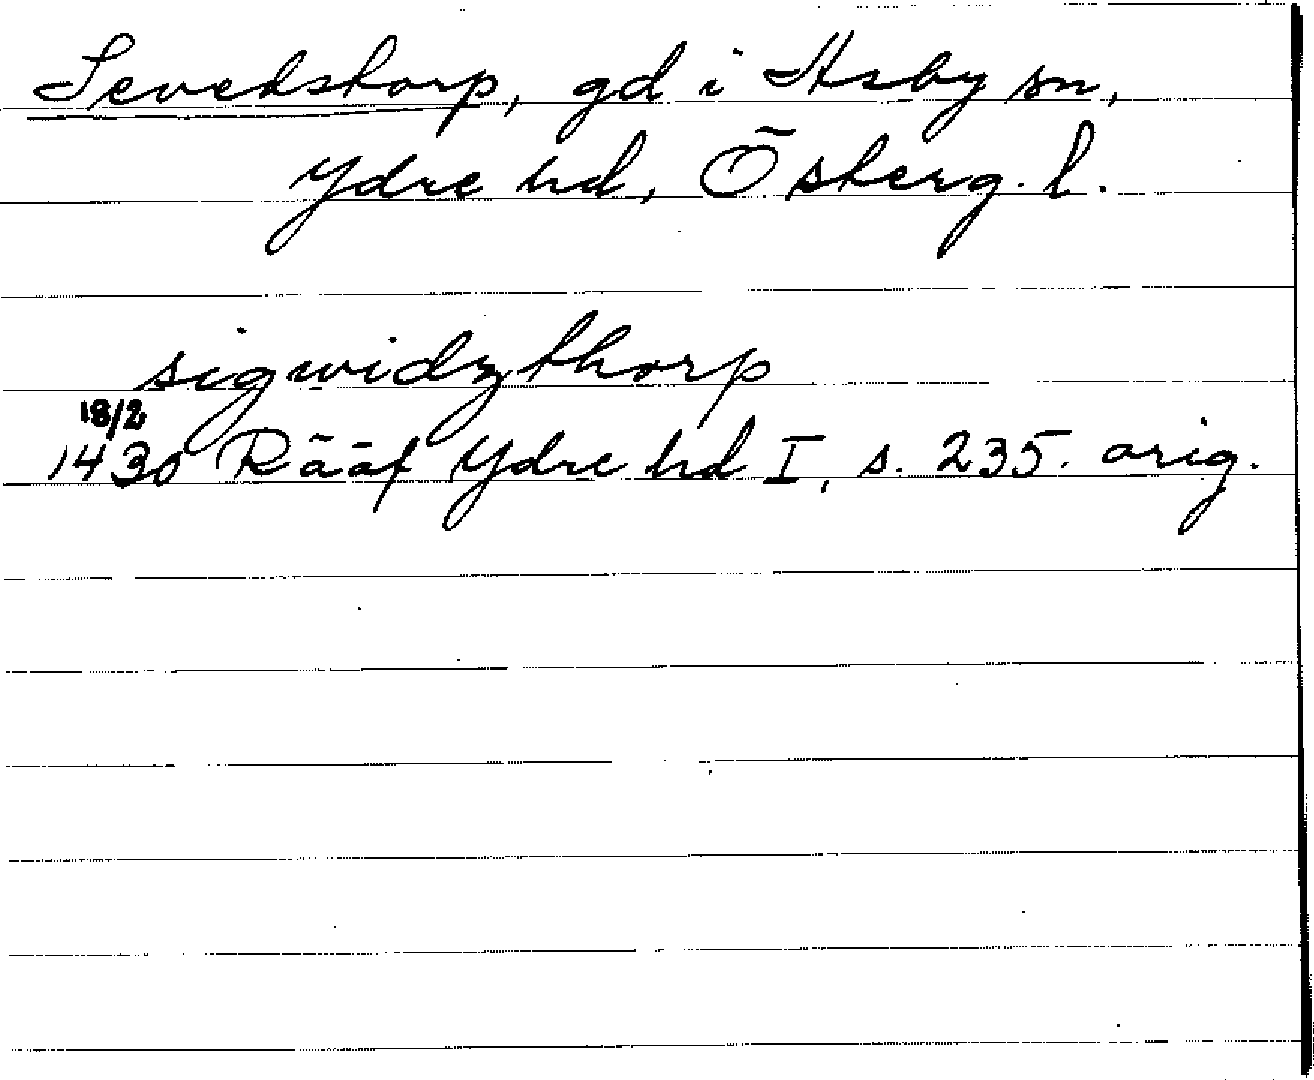 Sevedstorp, gd i Asby sn,
Ydre hd, Österg. l.
sigwidzthorp
18/2
1430 Rääf Ydre hd I, s. 235. orig.